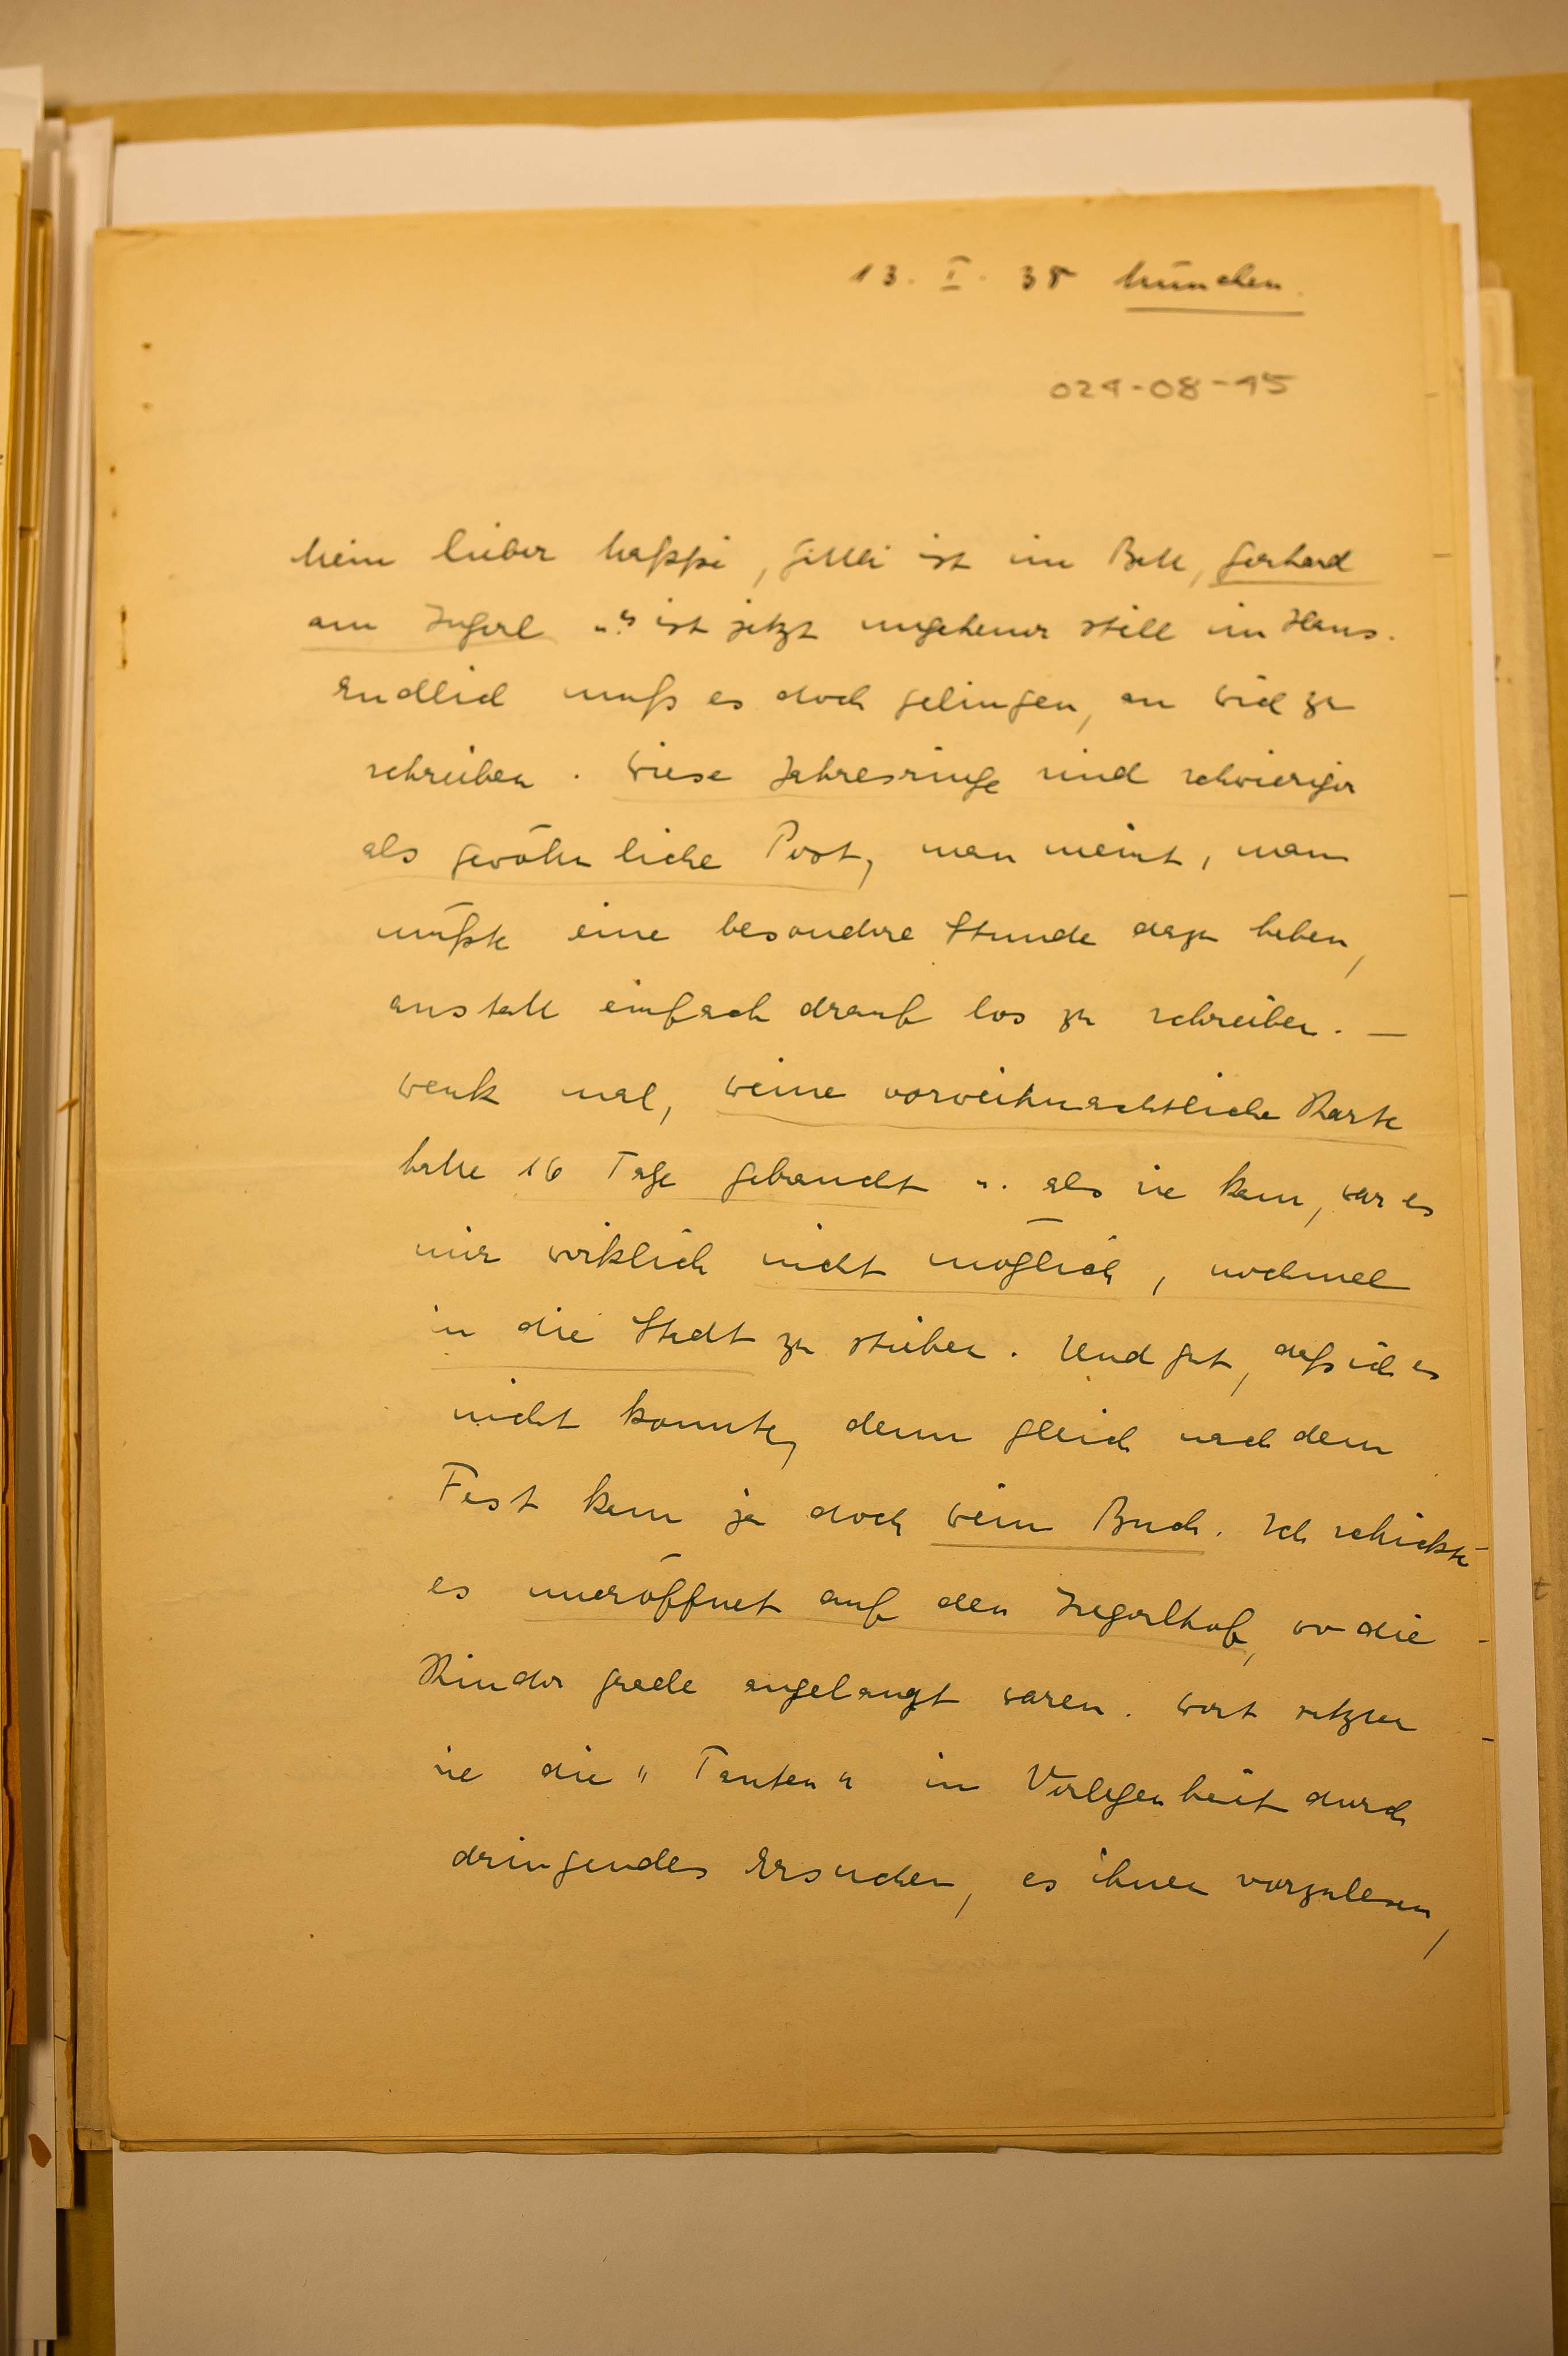 13. I. 38 München.
024-08-45
Mein lieber Kappi, Gitti ist im Bett, Gerhard
am Ziegerl u. es ist jetzt ungeheuer still im Haus.
Endlich muß es doch gelingen, an Dich zu
schreiben. Diese Jahresringe sind schwieriger
als gewöhnliche Post, man meint, man
müßte eine besondere Stunde dazu haben,
anstatt einfach drauf los zu schreiben. —
Denk mal, Deine vorweihnachtliche Karte
hatte 16 Tage gebraucht u. als sie kam, war es
mir wirklich nicht möglich, nochmal
in die Stadt zu stieben. Und gut, daß ich es
nicht konnte, denn gleich nach dem
Fest kam ja doch Dein Buch. Ich schickte
es uneröffnet auf den Ziegerlhof, wo die
Kinder grade angelangt waren. Dort setzten
sie die "Tanten" in Verlegenheit durch
dringendes Ersuchen, es ihnen vorzulesen,